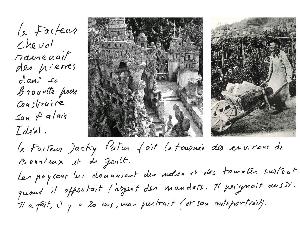 Le Facteur
Cheval
ramenait
des pierres
dans sa
brouette pour
construire
son Palais
Idéal.
Le facteur Jacky faisait la tournée des environs de
et de
Les paysans lui donnaient des melons et des tomates surtout
quand il apportait l'argent des mandats. Il peignait aussi.
Il a fait, il y a 20 ans, mon portrait (et son autoportrait).